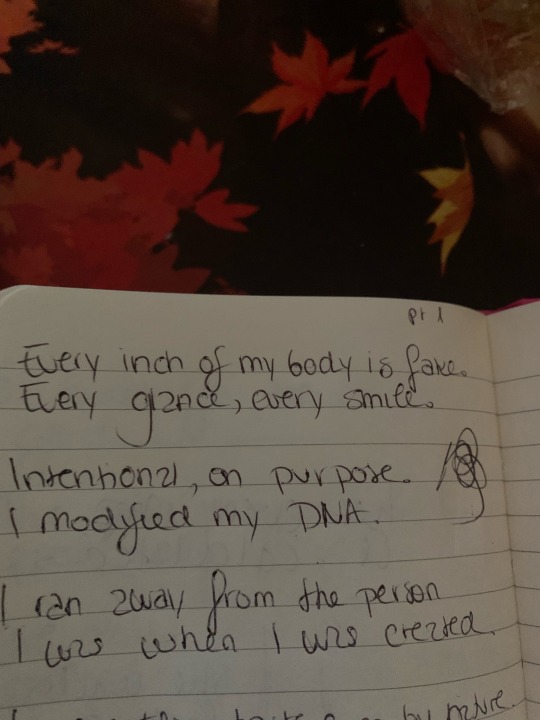 pt 1
Every inch of my body is fake.
Every glance, every smile.
Intentional, on purpose.
I modyfied my DNA.
I ran away from the person
I was when I was created.
by nature.